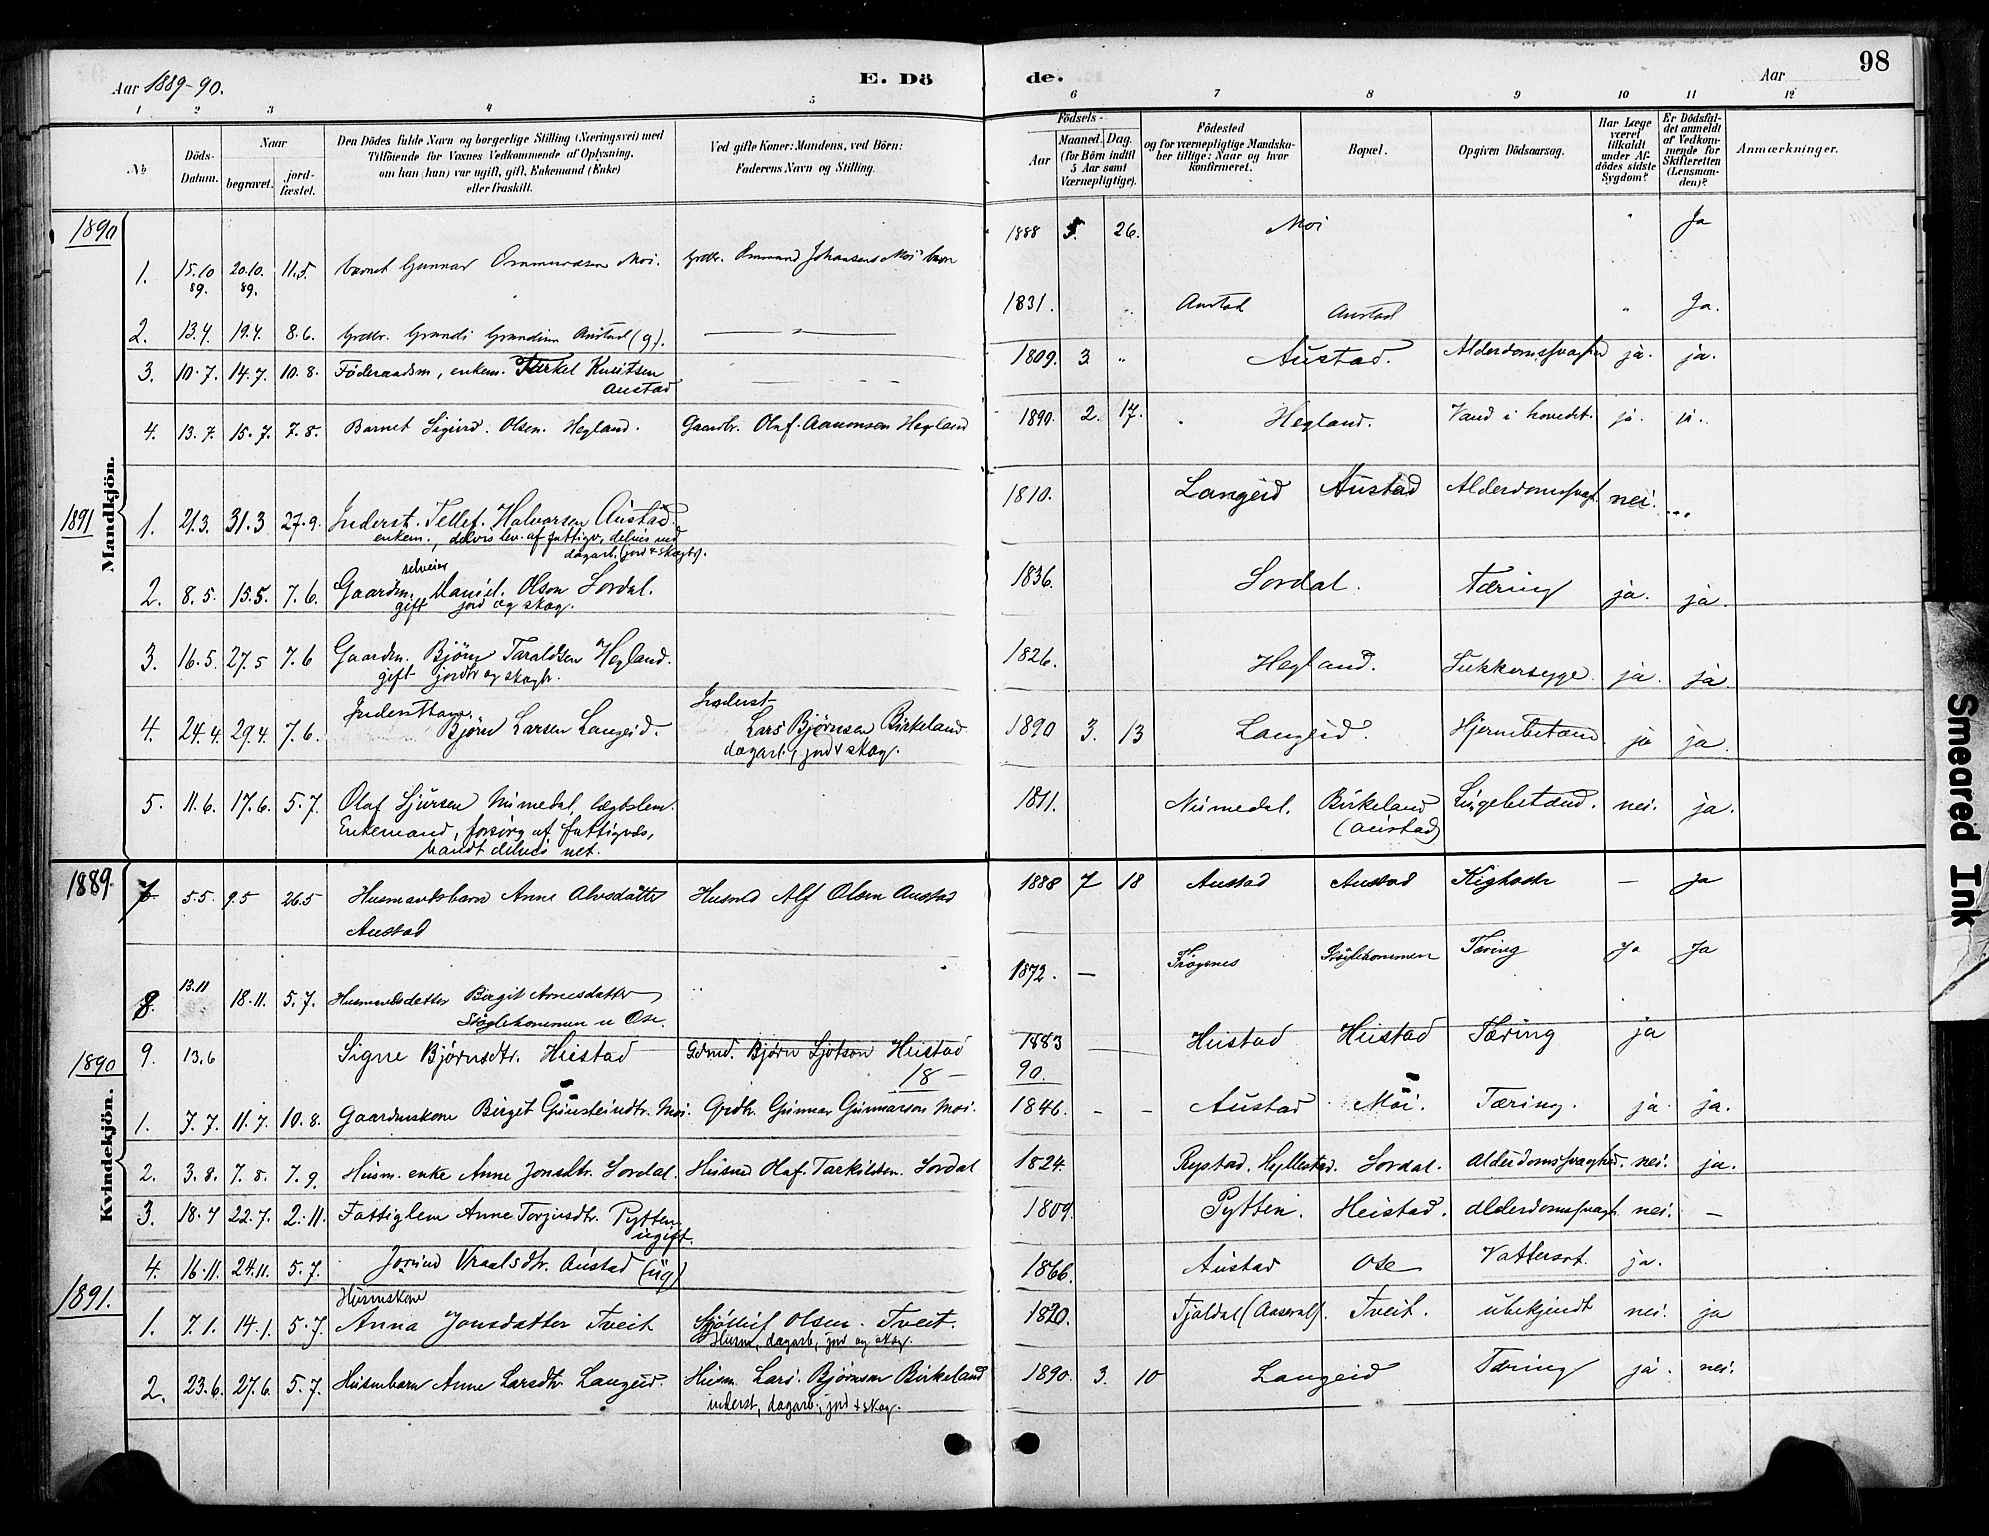 98
Aar 1889-90. E. Dö de. Aar
1 2 3 4 5 6 7 8 9 10 11 12
№ Döds-Datum. Naar begravet. jord-fæstet. Den Dödes fulde Navn og borgerlige Stilling (Næringsvei) med Tilföiende for Voxnes Vedkommende af Oplysning, om han (hun) var ugift, gift, Enkemand (Enke) eller fraskilt. Ved gifte Koner: Mandens, ved Börn: Faderens Navn og Stilling. Födsels- Aar Maaned. Dag. (for Börn indtil 5 Aar samt Værnepligtige). Födested og for værnepligtige Mandskaber tillige: Naar og hvor konfirmeret. Bopæl. Opgiven Dödsaarsag. Har Læge været tilkaldt under Afdödes sidste Sygdom? Er Dödsfaldet anmeldt af Vedkommende for Skifteretten (Lensmanden)? Anmærkninger.
Mandkjön.
1890
1. 15.10 89. 20.10. 89. 11.5. Barnet Gunnar Ommundsen Moi. Grdbr. Ommund Johansens Moi barn 1888 5. 26. Moi " Ja
2. 13.4. 19.4. 8.6. Grdbr. Austad (g). — " — 1831. " Austad Austad " Ja.
3. 10.7. 14.7. 10.8. Föderaadsm, enkem. Tarkel Knutsen Austad — — 1809. 3. " Austad. Alderdomssvaghed ja. ja.
4. 13.7. 15.7. 7.8. Barnet Sigurd. Olsen. Hegland. Gaardbr. Olaf. Aanonsen Hegland 1890. 2. 17. Hegland. Vand i hovedet. ja.
1891
1. 21.3. 31.3 27.9. Inderst. Tellef. Halvorsen Austad. enkem., delvis lev. af fattigv., delvis ved dagarb. (jord & skogbr). 1810. Langeid Austad Alderdomssvagh. nei. ...
2. 8.5. 15.5. 7.6. Gaardm. selveier Daniel. Olson Lordal. gift jord og skog. 1836. Lordal. Tæring ja. ja.
3. 16.5. 27.5 7.6 Gaardm. Bjørn Taraldsen Hegland. gift jordbr og skogbr. 1826. Hegland. Sukkersyge. ja. ja.
4. 24.4. 29.4. 7.6. Bjørn Larsen Langeid. Inderst Lars Bjørnsen Birkeland dagarb., jord & skog. 1890 3. 13 Langeid. Hjernebetænd. ja ja.
5. 11.6. 17.6. 5.7. Olaf Sjursen Numedal, lægdslem. Enkemand, forsørg. af fattigvæs, bandt delvis net. 1811. Numedal. Birkeland (Austad) Lungebetænd. nei. ja.
Kvindekjön.
1889.
7 5.5. 9.5 26.5 Husmandsbarn Anne Alvsdatter Austad Husmd Alf Olsen Austad 1888 7 18 Austad Austad Kighoste — Ja
8. 13.11 18.11. 5.7. Husmandsdatter Birgit Arnesdatter Støglehommen u Ose. 1872. — Frøysnes Støglehommen Tæring Ja Ja
9. 13.6 Signe Bjørnsdtr. Heistad Gdmd. Bjørn Ljotson Heistad 1883 — Heistad Heistad Tæring ja
1890
18 — 90.
1. 7.7. 11.7. 10.8. Gaardmskone Birget Gunsteindtr. Moi. Grdbr. Gunnar Gunnarson Moi. 1846. - - Austad Moi. Tæring. ja. ja.
2. 3.8. 7.8. 7.9. Husm. enke Anne Jonsdtr. Lordal. Husmd Olaf. Tarkilsen. Lordal 1824. Rystad. Hyllestad. Lordal. Alderdomssvaghed. nei. ja.
3. 18.7 22.7. 2.11. Fattiglem Anne Torjusdtr. Pytten. ugift. 1809. Pytten. Heistad. Alderdomssvagh. nei. —
4. 16.11. 24.11. 5.7. Jorund Vraalsdtr. Austad (ug) 1866. Austad Ose Vattersot. ja.
1891.
1. 7.1. 14.1. 5.7. Husmskone Anna Jonsdatter Tveit Olsen. Tveit. Husm, dagarb., jord og skog. 1820. Tjaldal (Aaseral). Tveit. ubekjendt nei. ja
2. 23.6. 27.6. 5.7. Husmbarn Anne Larsdtr Langeid. Husm. Lars. Bjørnsen Birkeland inderst, dagarb., jord & skog. 1890. 3. 10 Langeid Tæring ja. nei.
Smeared Ink